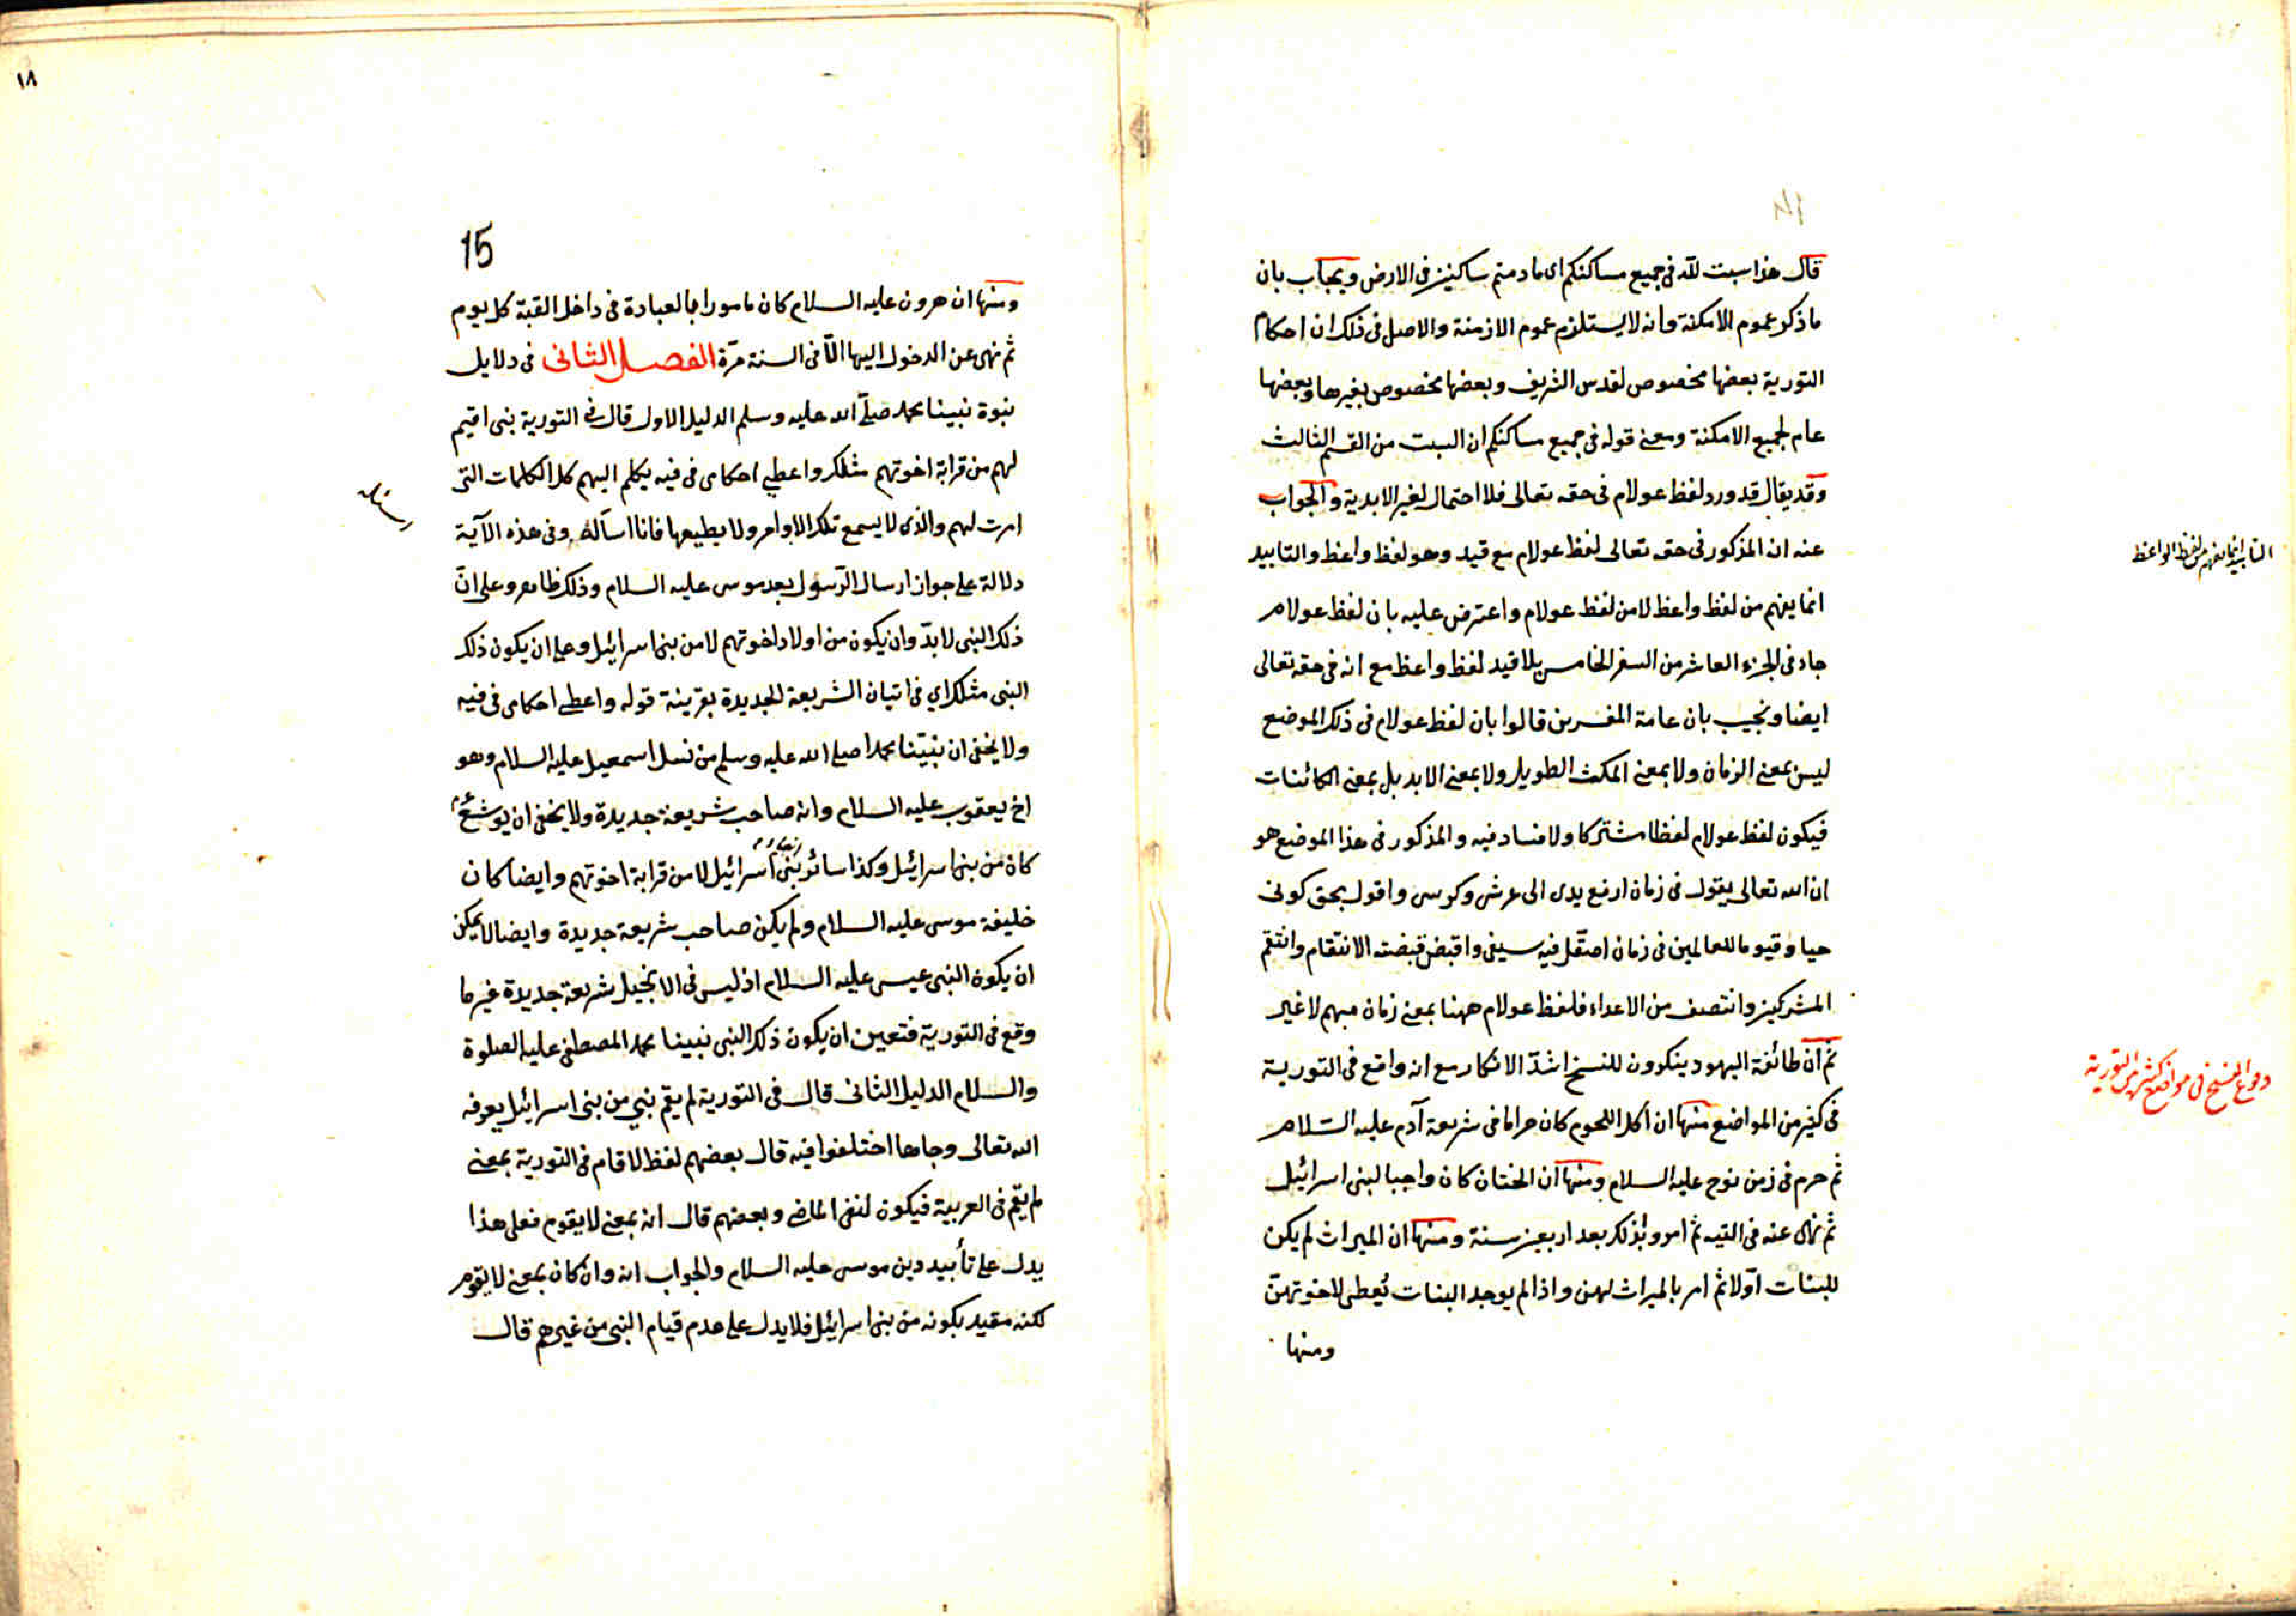 ١٤
قال هذا سبت لله فى جميع مساكنكم اى ما دمتم ساكنين فى الارض ويجاب بان
ما ذكر عموم الامكنة وانه لا يستلزم عموم الازمنة والاصل فى ذلك ان احكام
التورية بعضها مخصوص لقدس الشريف وبعضها مخصوص بغيرها وبعضها
عام لجميع الامكنة ومعنى قوله فى جميع مساكنكم ان السبت من القسم الثالث
وقد يقال قد ورد لفظ عولام فى حقه تعالى فلا احتمال لغير الابدية والجواب
عنه ان المذكور فى حقه تعالى لفظ عولام مع قيد وهو لفظ واعظ والتابيد
انما يفهم من لفظ واعظ لا من لفظ عولام واعترض عليه بان لفظ عولام
جاء فى الجزء العاشر من السفر الخامس بلا قيد لفظ واعظ مع انه فى حقه تعالى
ايضا ونجيب بان عامة المفسرين قالوا بان لفظ عولام فى ذلك الموضع
ليس بمعنى الزمان ولا بمعنى المكث الطويل ولا بمعنى الابد بل بمعنى الكائنات
فيكون لفظ عولام لفظا مشتركا ولا فساد فيه والمذكور فى هذا الموضع هو
ان الله تعالى يقول فى زمان ارفع يدى الى عرش وكرسى واقول بحق كونى
حيا وقيوما للعالمين فى زمان اصقل فيه سيفى واقبض قبضته الانتقام وانتقم
المشركين وانتصف من الاعداء فلفظ عولام ههنا بمعنى زمان مبهم لا غير
ثم ان طائفة اليهود ينكرون للنسخ اشدّ الانكار مع انه واقع فى التورية
فى كثير من المواضع منها ان اكل اللحوم كان حراما فى شريعة آدم عليه السلام
ثم حرم فى زمن نوح عليه السلام ومنها ان الختان كان واجبا لبنى اسرائيل
ثم نهى عنه فى التيه ثم امروا بذلك بعد اربعين سنة ومنها ان الميراث لم يكن
للبنات اوّلا ثم امر بالميراث لهن واذا لم يوجد البنات يُعطى لاخوتهنّ
ومنها
التابيد انما يفهم من لفظ الواعظ
وقوع النسخ فى مواضع كثيرة من التورية
١٨
15
ومنها ان هرون عليه السلام كان مامورا بالعبادة فى داخل القبة كل يوم
ثم نهى عن الدخول اليها الّا فى السنة مرّة الفصل الثانى فى دلايل
نبوة نبينا محمد صلّى الله عليه وسلم الدليل الاول قال فى التورية نبى اقيم
لهم من قرابة اخوتهم مثلك واعطى احكامى فى فيه يكلم اليهم كل الكلمات التى
امرت لهم والذى لا يسمع تلك الاوامر ولا يطيعها فانا اسأله وفى هذه الآية
دلالة على جواز ارسال الرّسول بعد موسى عليه السلام وذلك ظاهر وعلى انّ
ذلك النبى لا بدّ وان يكون من اولاد اخوتهم لا من بنى اسرائيل وعلى ان يكون ذلك
النبى مثلك اي فى اتيان الشريعة الجديدة بقرينة قوله واعطى احكامى فى فيه
ولا يخفى ان نبيّنا محمدا صلى الله عليه وسلم من نسل اسمعيل عليه السلام وهو
اخ يعقوب عليه السلام وانه صاحب شريعة جديدة ولا يخفى ان يوشع عم
كان من بنى اسرائيل وكذا سائر بنى اسرائيل لا من قرابة اخوتهم وايضا كان
خليفة موسى عليه السلام ولم يكن صاحب شريعة جديدة وايضا لا يمكن
ان يكون النبى عيسى عليه السلام اذ ليس فى الانجيل شريعة جديدة غير ما
وقع فى التورية فتعين ان يكون ذلك النبى نبينا محمد المصطفى عليه الصلوة
والسلام الدليل الثانى قال فى التورية لم يقم نبي من بنى اسرائيل يعرفه
الله تعالى وجاها اختلفوا فيه قال بعضهم لفظ لا قام فى التورية بمعنى
لم يقم فى العربية فيكون لنفى الماضى وبعضهم قال انه بمعنى لا يقوم فعلى هذا
يدل على تأبيد دين موسى عليه السلام والجواب انه وان كان بمعنى لا يقوم
لكنه مقيد بكونه من بنى اسرائيل فلا يدل على عدم قيام النبى من غيرهم قال